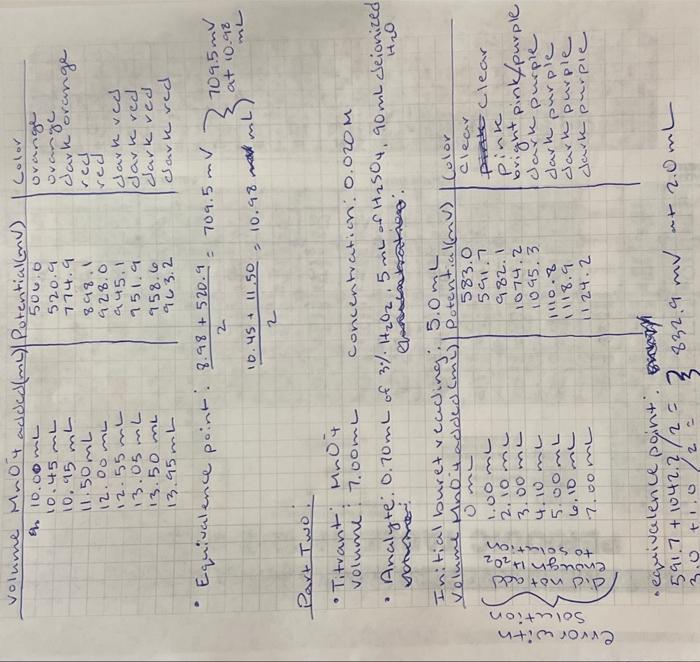 Volume MnO4⁻ added (mL) | Potential (mV) | Color
10.00 mL 506.0 orange
10.45 mL 520.9 orange
10.95 mL 774.9 dark orange
11.50 mL 898.1 red
12.00 mL 928.0 red
12.55 mL 945.1 dark red
13.05 mL 951.9 dark red
13.50 mL 958.6 dark red
13.95 mL 963.2 dark red
• Equivalence point: 8.98 + 520.9 / 2 = 709.5 mV } 709.5 mV at 10.98 mL
10.45 + 11.50 / 2 = 10.98 mL
Part Two:
• Titrant: MnO4⁻
Volume: 7.00 mL concentration: 0.020 M
• Analyte: 0.70 mL of 3% H2O2, 5 mL of H2SO4, 90 mL deionized H2O
Initial buret reading: 5.0 mL
Volume MnO4⁻ added (mL) | Potential (mV) | Color
0 mL 583.0 clear
1.00 mL 591.7 clear
2.10 mL 982.1 pink
3.00 mL 1074.2 bright pink/purple
4.10 mL 1095.3 dark purple
5.00 mL 1110.8 dark purple
6.10 mL 1118.9 dark purple
7.00 mL 1124.2 dark purple
error with
solution
did not add
enough H2O2
to solution
• equivalence point:
591.7 + 1042.2 / 2 = } 832.9 mV at 2.0 mL
3.0 + 1.0 / 2 =